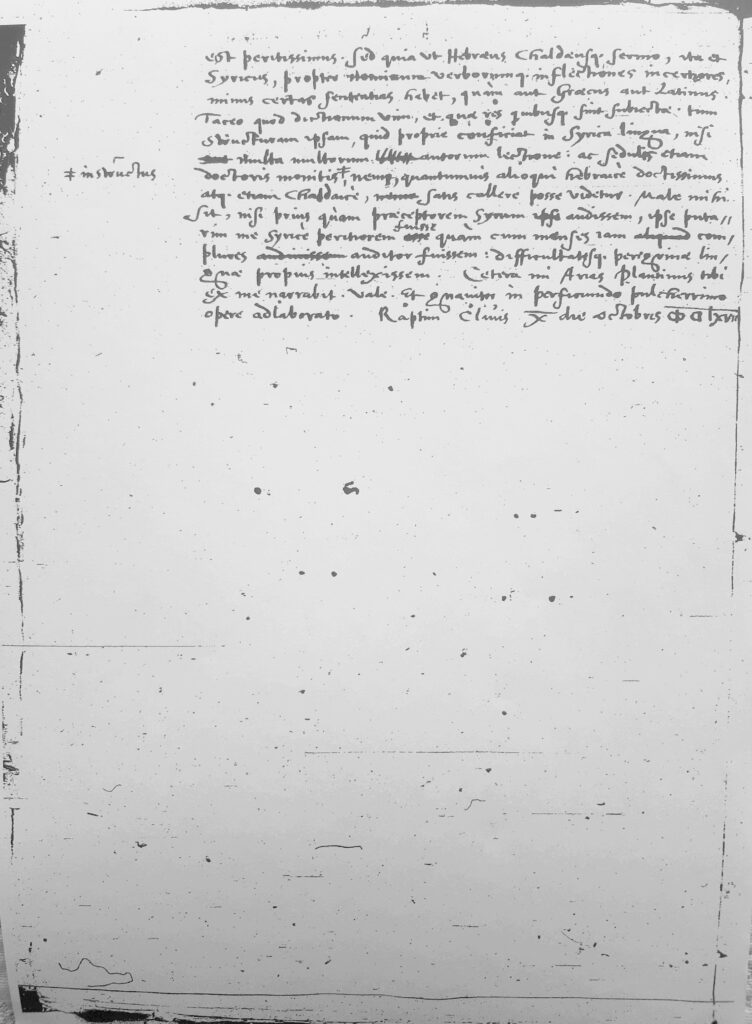 est peritissimus. Sed quia ut Hebræus Chaldæusq. sermo, ita et
Syricus, propter nominum verborumq. inflectiones incertiores,
minus certas sententias habet, quàm aut Græcus aut Latinus.
Taceo quod dictionum vim, et quæ res quibusq. sint subiectæ: tum
structuram ipsam, quid proprie conficiat in Syrica lingua, nisi
multa multorum autorum lectione: ac sedulis etiam
‡ instructus
doctoris monitis‡, nemo, quantumuis alioqui hebraicè doctissimus
atq. etiam Chaldaicè, satis callere posse videtur. Male mihi
sit, nisi prius quàm præceptorem Syrum ipse audissem, ipse puta//
rim me Syricè peritiorem esse fuisse quàm cum menses iam aliquod com/
plures audiuissem auditor fuissem: difficultatesq. peregrinæ lin/
guæ propius intellexissem. Cetera mi Arias Plandinus tibi
ex me narrabit. Vale. Et gnauiter in perficiundo pulcherrimo
opere adlaborato. Raptim Cliuis X die Octobris